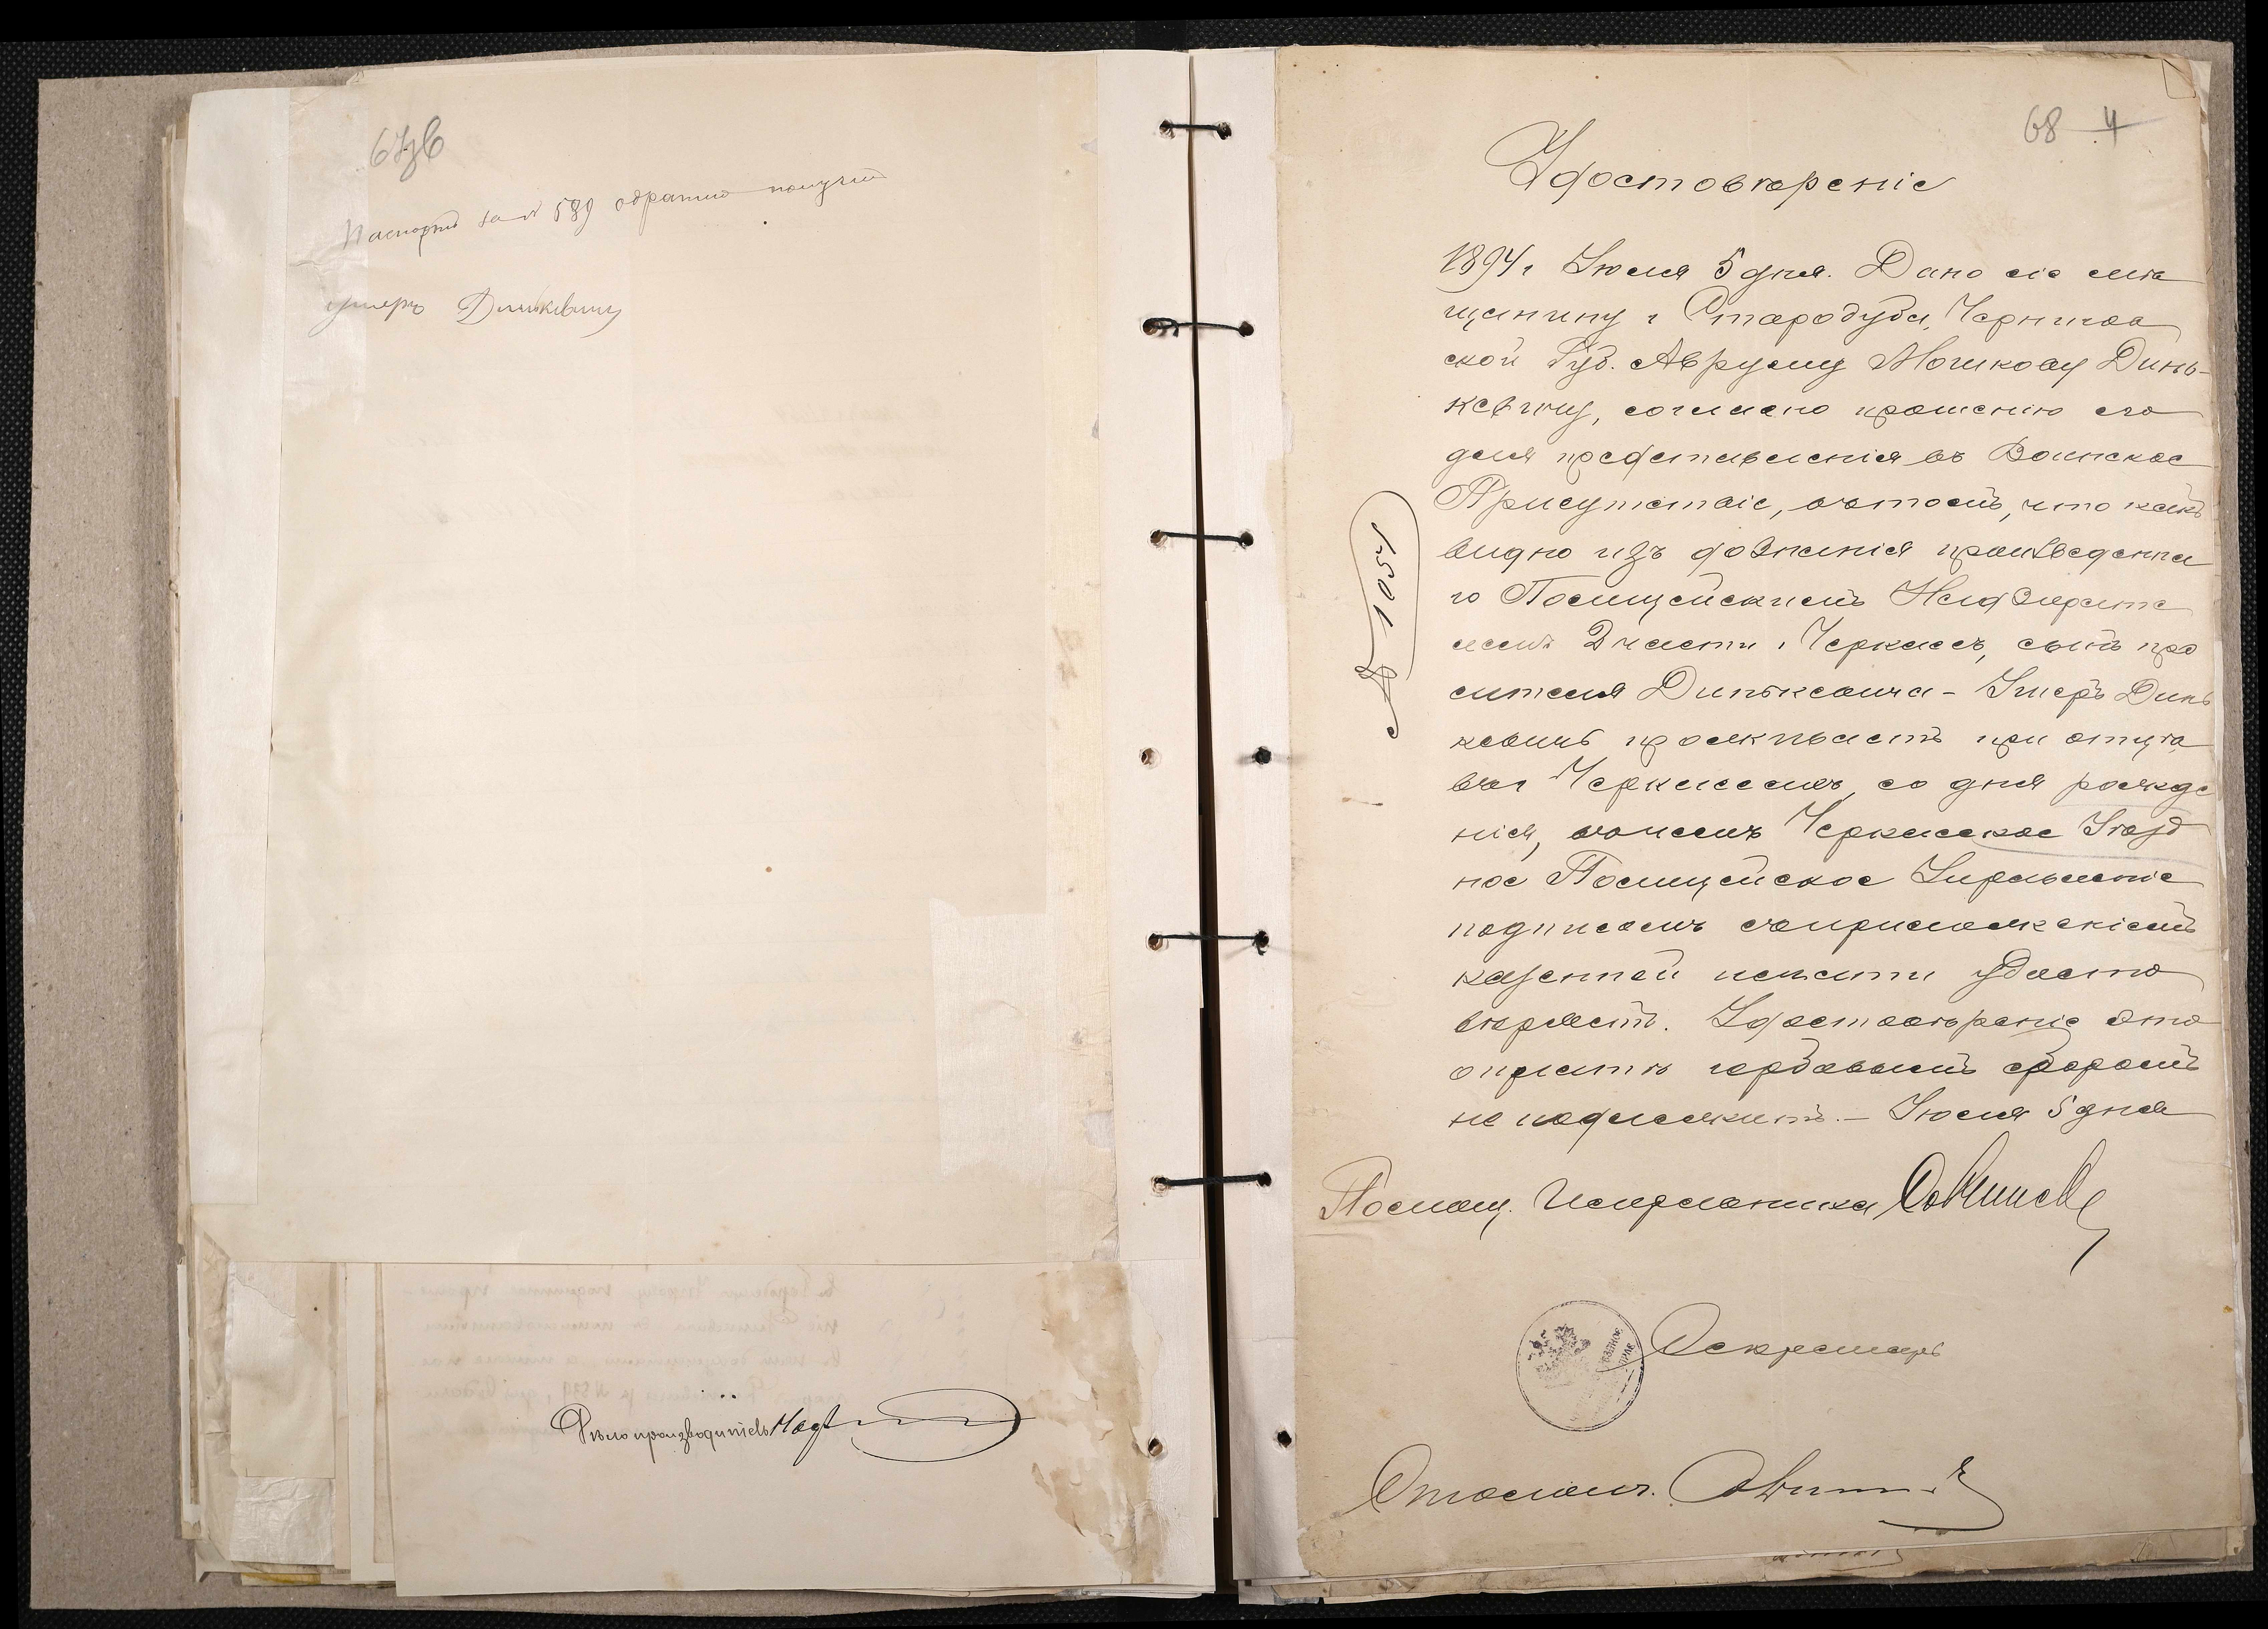 67б
Паспортъ за № 589 обратно получилъ
Умеръ Динькевичъ
Дѣлопроизводитель
68 4
Удостовѣреніе
1894 г Іюля 5 дня. Дано сіе мѣ
щанину г Стародуба, Чернигов
ской Губ. Авруму Мошкову Динь-
кевичу, согласно прошенію его
для представленія въ Воинское
Присутствіе, въ томъ, что какъ
видно изъ дознанія произведенна
го Полицейскимъ Надзирате
лемъ 2 части г Черкассъ, сынъ про
сителя Динькевича - Умеръ Динь
кевичъ проживаетъ при отцѣ
въ г Черкассахъ, со дня рожде
нія, въ чемъ Черкасское Уѣзд
ное Полицейское Управленіе
подписомъ съ приложеніемъ
казенной печати удосто
вѣряетъ. Удостовѣреніе это
оплатѣ гербовымъ сборомъ
не подлежитъ. - Іюля 5 дня
№ 1054
Помощ. Исправника
Секретарь
Столонач.